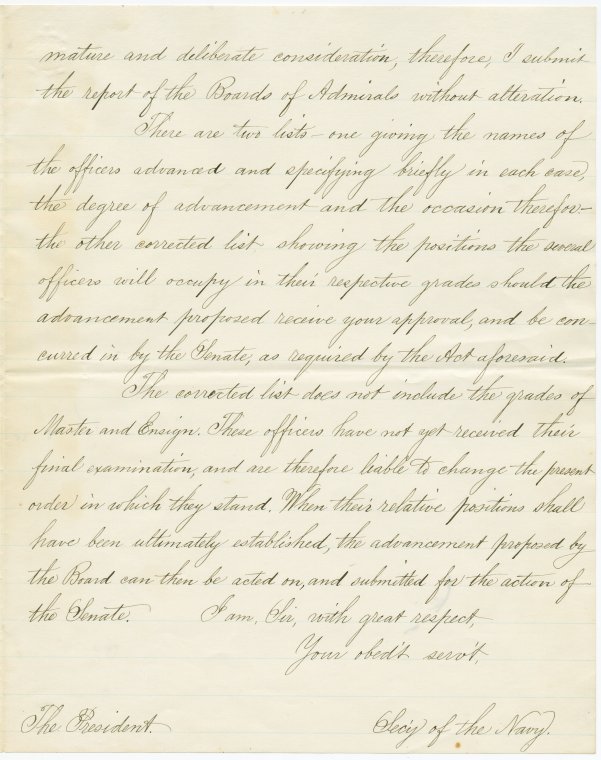 mature and deliberate consideration, therefore, I submit
the report of the Boards of Admirals without alteration.
There are two lists - one giving the names of
the officers advanced and specifying briefly in each case,
the degree of advancement and the occasion therefor -
the other corrected list showing the positions the several
officers will occupy in their respective grades should the
advancement proposed receive your approval, and be con-
curred in by the Senate, as required by the Act aforesaid.
The corrected list does not include the grades of
Master and Ensign. These officers have not yet received their
final examination, and are therefore liable to change the present
order in which they stand. When their relative positions shall
have been ultimately established, the advancement proposed by
the Board can then be acted on, and submitted for the action of
the Senate. I am, Sir, with great respect,
Your obed't serv't,
The President. Sec'y of the Navy.